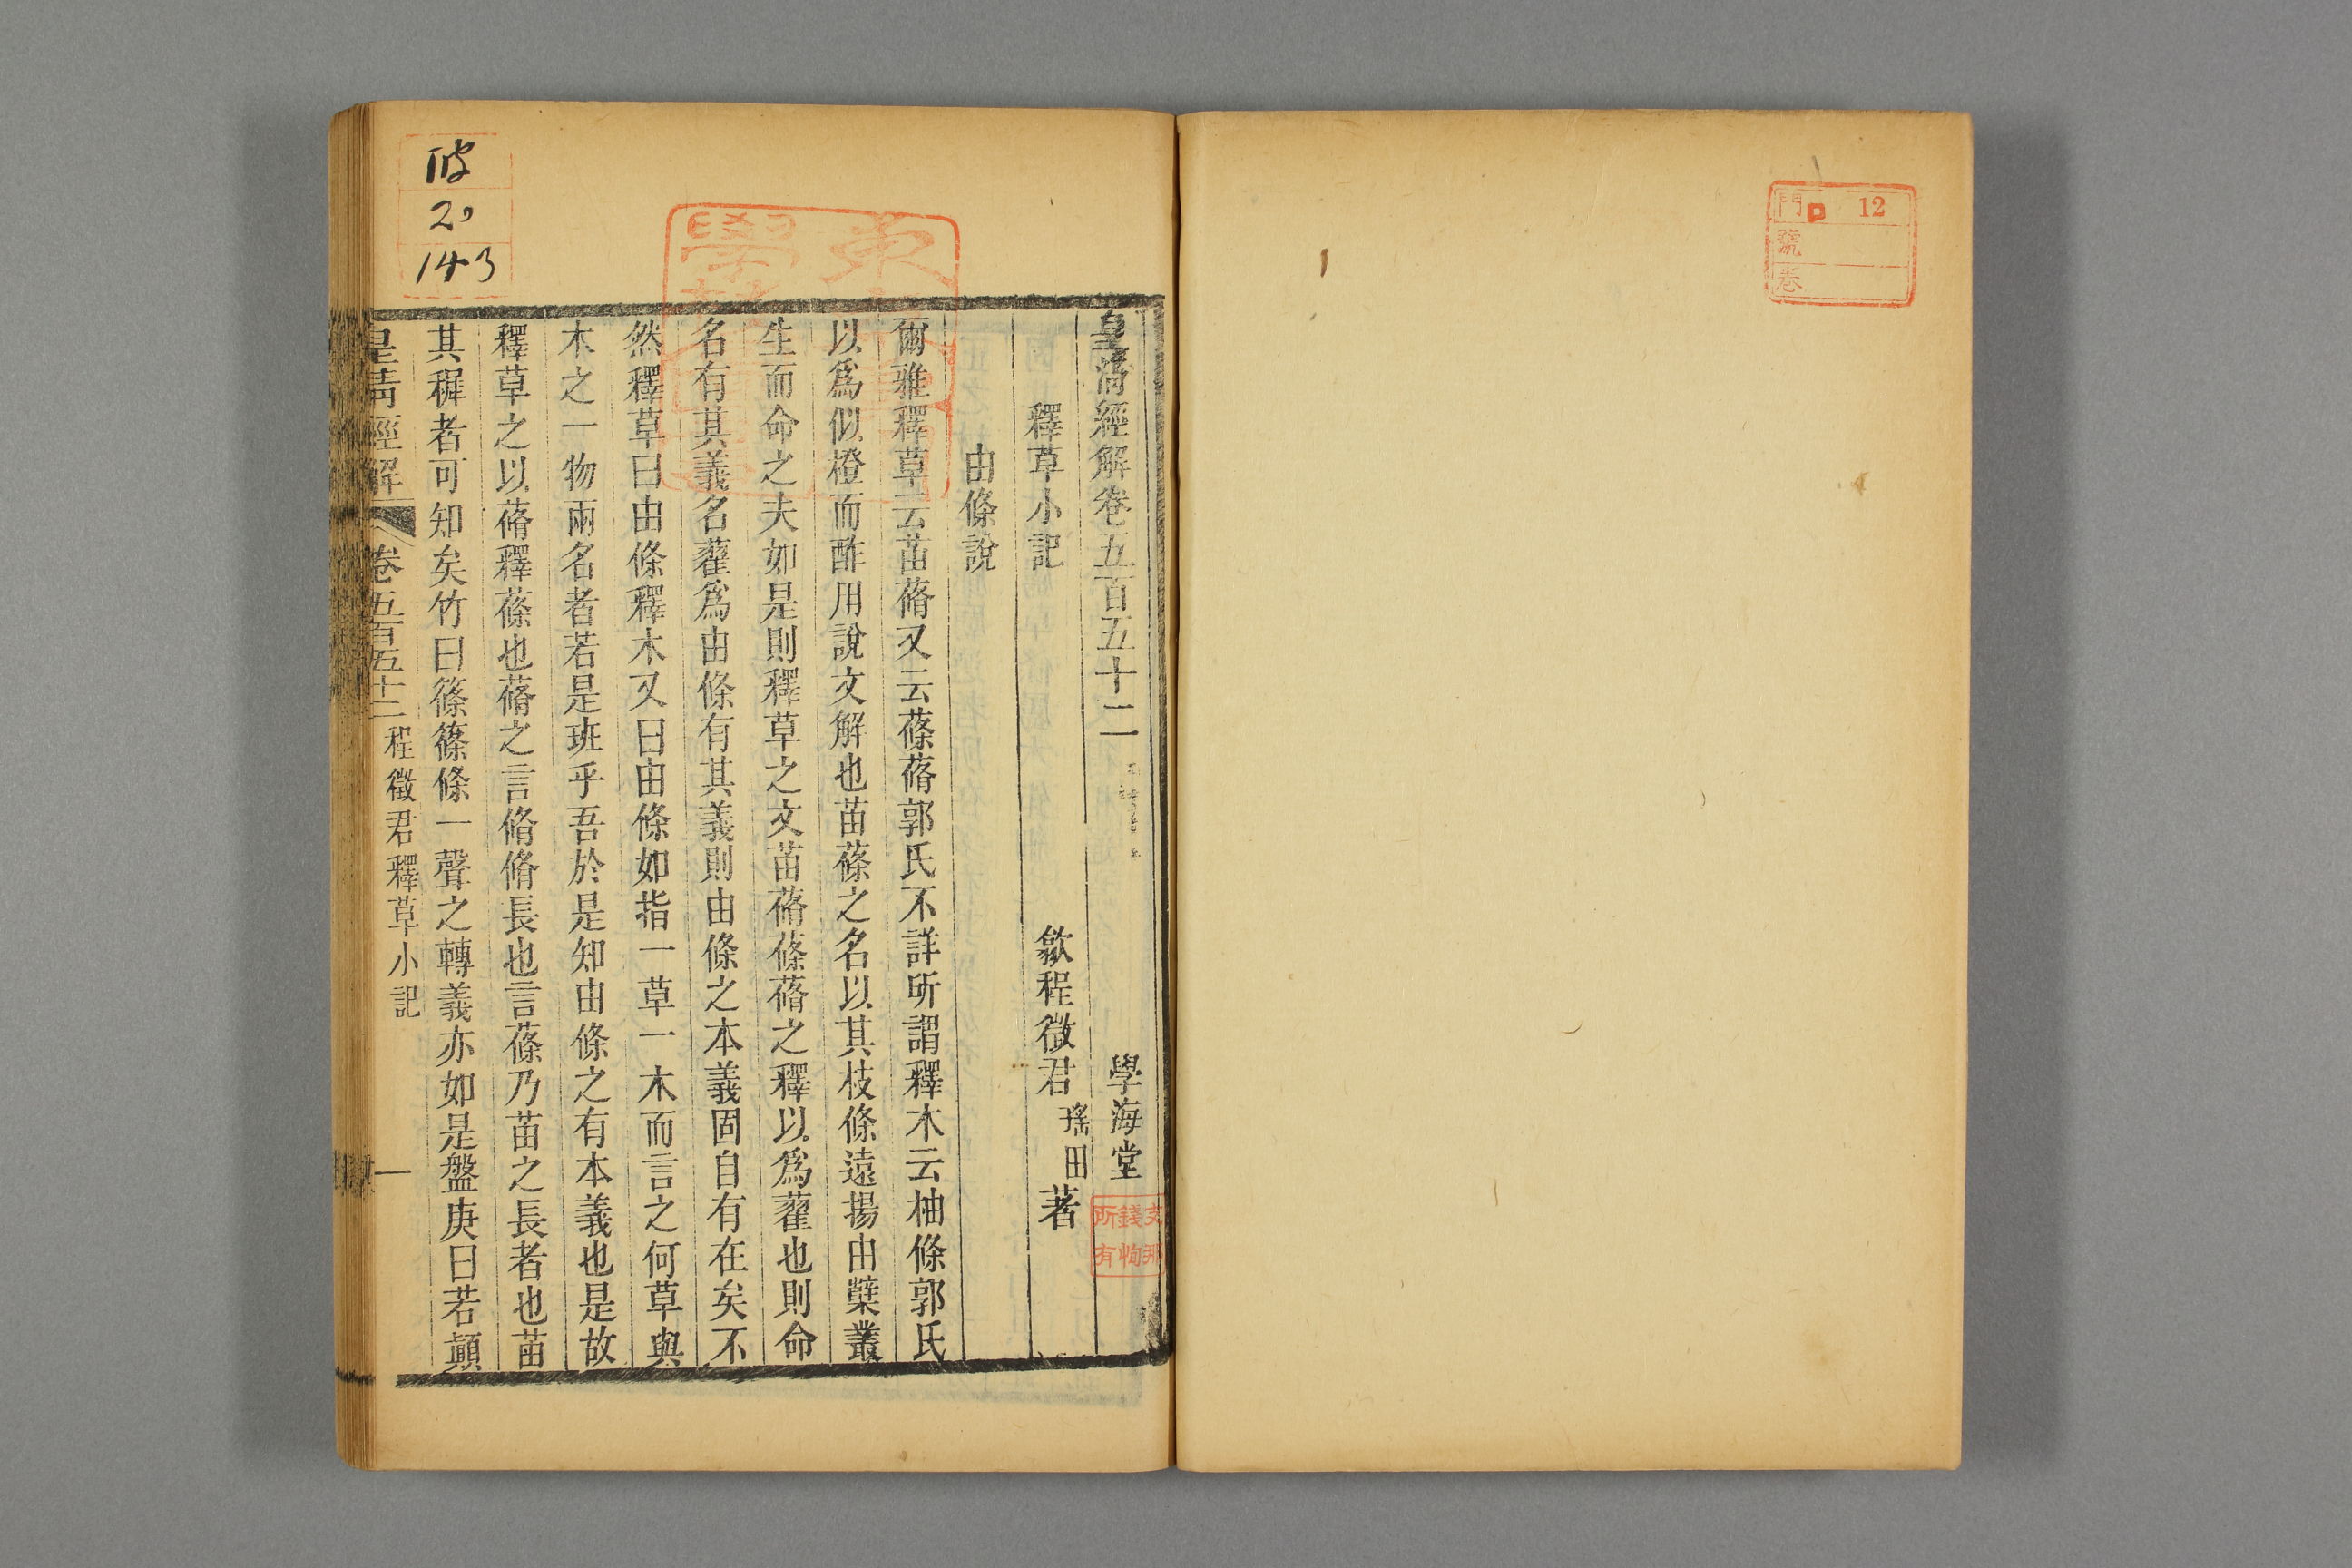 門 12
號
卷
皇清經解卷五百五十二 學海堂
釋草小記 歙程徵君瑤田著
由條說
爾雅釋草云苗蓨又云蓧蓨郭氏不詳所謂釋木云柚條郭氏
以爲似橙而酢用說文解也苗蓧之名以其枝條遠揚由櫱叢
生而命之夫如是則釋草之文苗蓨蓧蓨之釋以爲藋也則命
名有其義名藋爲由條有其義則由條之本義固自有在矣不
然釋草曰由條釋木又曰由條如指一草一木而言之何草與
木之一物兩名者若是班乎吾於是知由條之有本義也是故
釋草之以蓨釋蓧也蓨之言脩脩長也言蓧乃苗之長者也苗
其稺者可知矣竹曰篠篠條一聲之轉義亦如是盤庚曰若顚
皇清經解 卷五百五十二 程徵君釋草小記 一
錢恂
所有
20
143